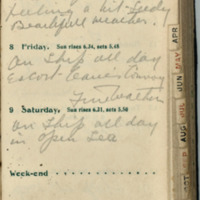 feeling a bit seedy
Beautifull weather.
8 Friday. Sun rises 6.34, sets 5.48
On Ship all day
Escort leaves Convoy
Fine weather
9 Saturday. Sun rises 6.31, sets 5.50
On Ship all day
in open Sea
Week-end
APR
MAY
JUN
JUL
AUG
SEP
OCT